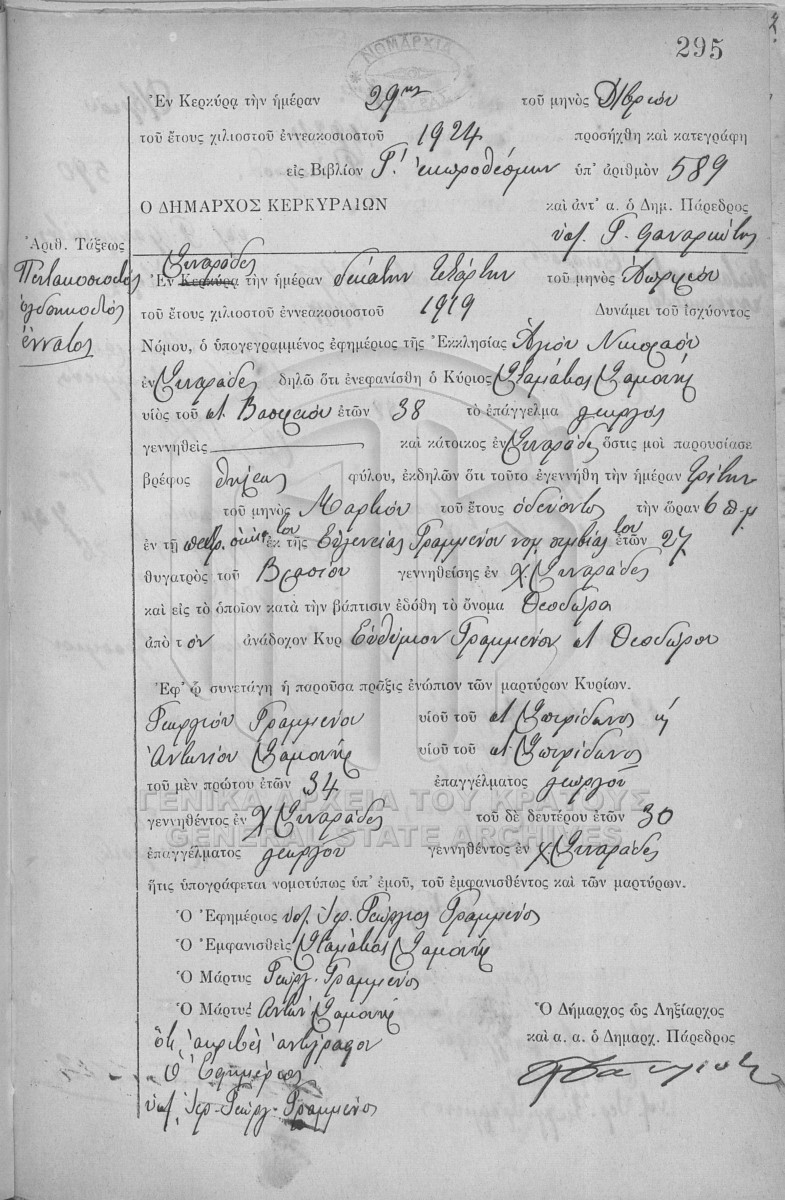 295
ΝΟΜΑΡΧΙΑ
Ἐν Κερκύρᾳ τὴν ἡμέραν 29ην τοῦ μηνὸς 8βρίου
τοῦ ἔτους χιλιοστοῦ ἐννεακοσιοστοῦ 1924 προσήχθη καὶ κατεγράφη
εἰς Βιβλίον Γ. ἐκπροθέσμων ὑπ' ἀριθμὸν 589
Ο ΔΗΜΑΡΧΟΣ ΚΕΡΚΥΡΑΙΩΝ καὶ ἀντ' α. ὁ Δημ. Πάρεδρος
ὑπ. Γ.
Ἀριθ. Τάξεως
Πεντακοσιοστὸς
ὀγδοηκοστὸς
ἔννατος
Σιναράδες
Ἐν Κερκύρᾳ τὴν ἡμέραν δεκάτην τετάρτην τοῦ μηνὸς Ἀπριλίου
τοῦ ἔτους χιλιοστοῦ ἐννεακοσιοστοῦ 1919 Δυνάμει τοῦ ἰσχύοντος
Νόμου, ὁ ὑπογεγραμμένος ἐφημέριος τῆς Ἐκκλησίας Ἁγίου Νικολάου
ἐν Σιναράδες δηλῶ ὅτι ἐνεφανίσθη ὁ Κύριος Σταμάτιος Σαμοΐλης
υἱὸς τοῦ Βασιλείου ἐτῶν 38 τὸ ἐπάγγελμα γεωργὸς
γεννηθεὶς καὶ κάτοικος ἐν Σιναράδες ὅστις μοὶ παρουσίασε
βρέφος θήλεος φύλου, ἐκδηλῶν ὅτι τοῦτο ἐγεννήθη τὴν ἡμέραν τρίτην
τοῦ μηνὸς Μαρτίου τοῦ ἔτους ὁδεύοντος τὴν ὥραν 6 π.μ
ἐν τῇ πατρ. οἰκίᾳ του ἐκ τῆς Εὐγενείας Γραμμένου νομ. συμβίας του ἐτῶν 27
θυγατρὸς τοῦ Βλασίου γεννηθείσης ἐν χ. Σιναράδες
καὶ εἰς τὸ ὁποῖον κατὰ τὴν βάπτισιν ἐδόθη τὸ ὄνομα Θεοδώρα
ἀπὸ τὸν ἀνάδοχον Κυρ Εὐθύμιον Γραμμένον Θεοδώρου
Ἐφ' ᾧ συνετάγη ἡ παροῦσα πρᾶξις ἐνώπιον τῶν μαρτύρων Κυρίων.
Γεωργίου Γραμμένου υἱοῦ τοῦ Σπυρίδωνος ἢ
Ἀντωνίου Σαμοΐλη υἱοῦ τοῦ Σπυρίδωνος
τοῦ μὲν πρώτου ἐτῶν 34 ἐπαγγέλματος γεωργοῦ
ΓΕΝΙΚΑ ΑΡΧΕΙΑ ΤΟΥ ΚΡΑΤΟΥΣ
γεννηθέντος ἐν χ Σιναράδες τοῦ δὲ δευτέρου ἐτῶν 30
GENERAL STATE ARCHIVES
ἐπαγγέλματος γεωργοῦ γεννηθέντος ἐν χ. Σιναράδες
ἥτις ὑπογράφεται νομοτύπως ὑπ' ἐμοῦ, τοῦ ἐμφανισθέντος καὶ τῶν μαρτύρων.
Ὁ Ἐφημέριος ὑπ. Ἱερ. Γεώργιος Γραμμένος
Ὁ Ἐμφανισθεὶς Σταμάτιος Σαμοΐλης
Ὁ Μάρτυς Γεώργ. Γραμμένος
Ὁ Μάρτυς Ἀντών. Σαμοΐλης
Ὁ Δήμαρχος ὡς Ληξίαρχος
καὶ α. α. ὁ Δημαρχ. Πάρεδρος
ὅτι ἀκριβὲς ἀντίγραφον
Ὁ Ἐφημέριος
ὑπ. Ἱερ. Γεώργ. Γραμμένος